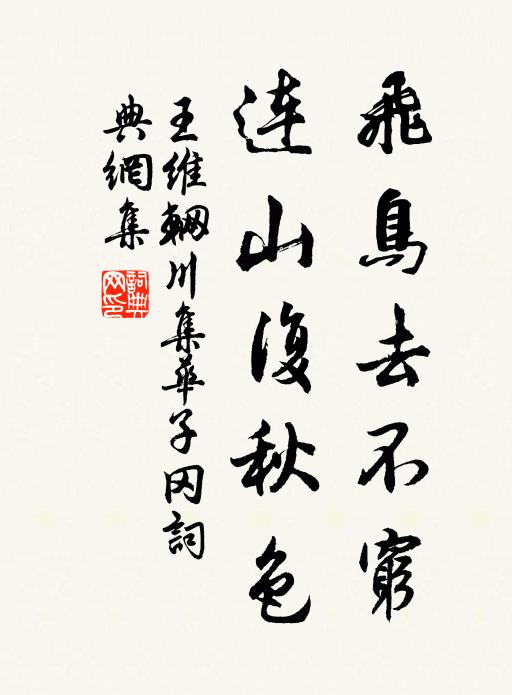 飛鳥去不窮
連山復秋色
王維輞川集華子冈詞
典網集
詞典
网印